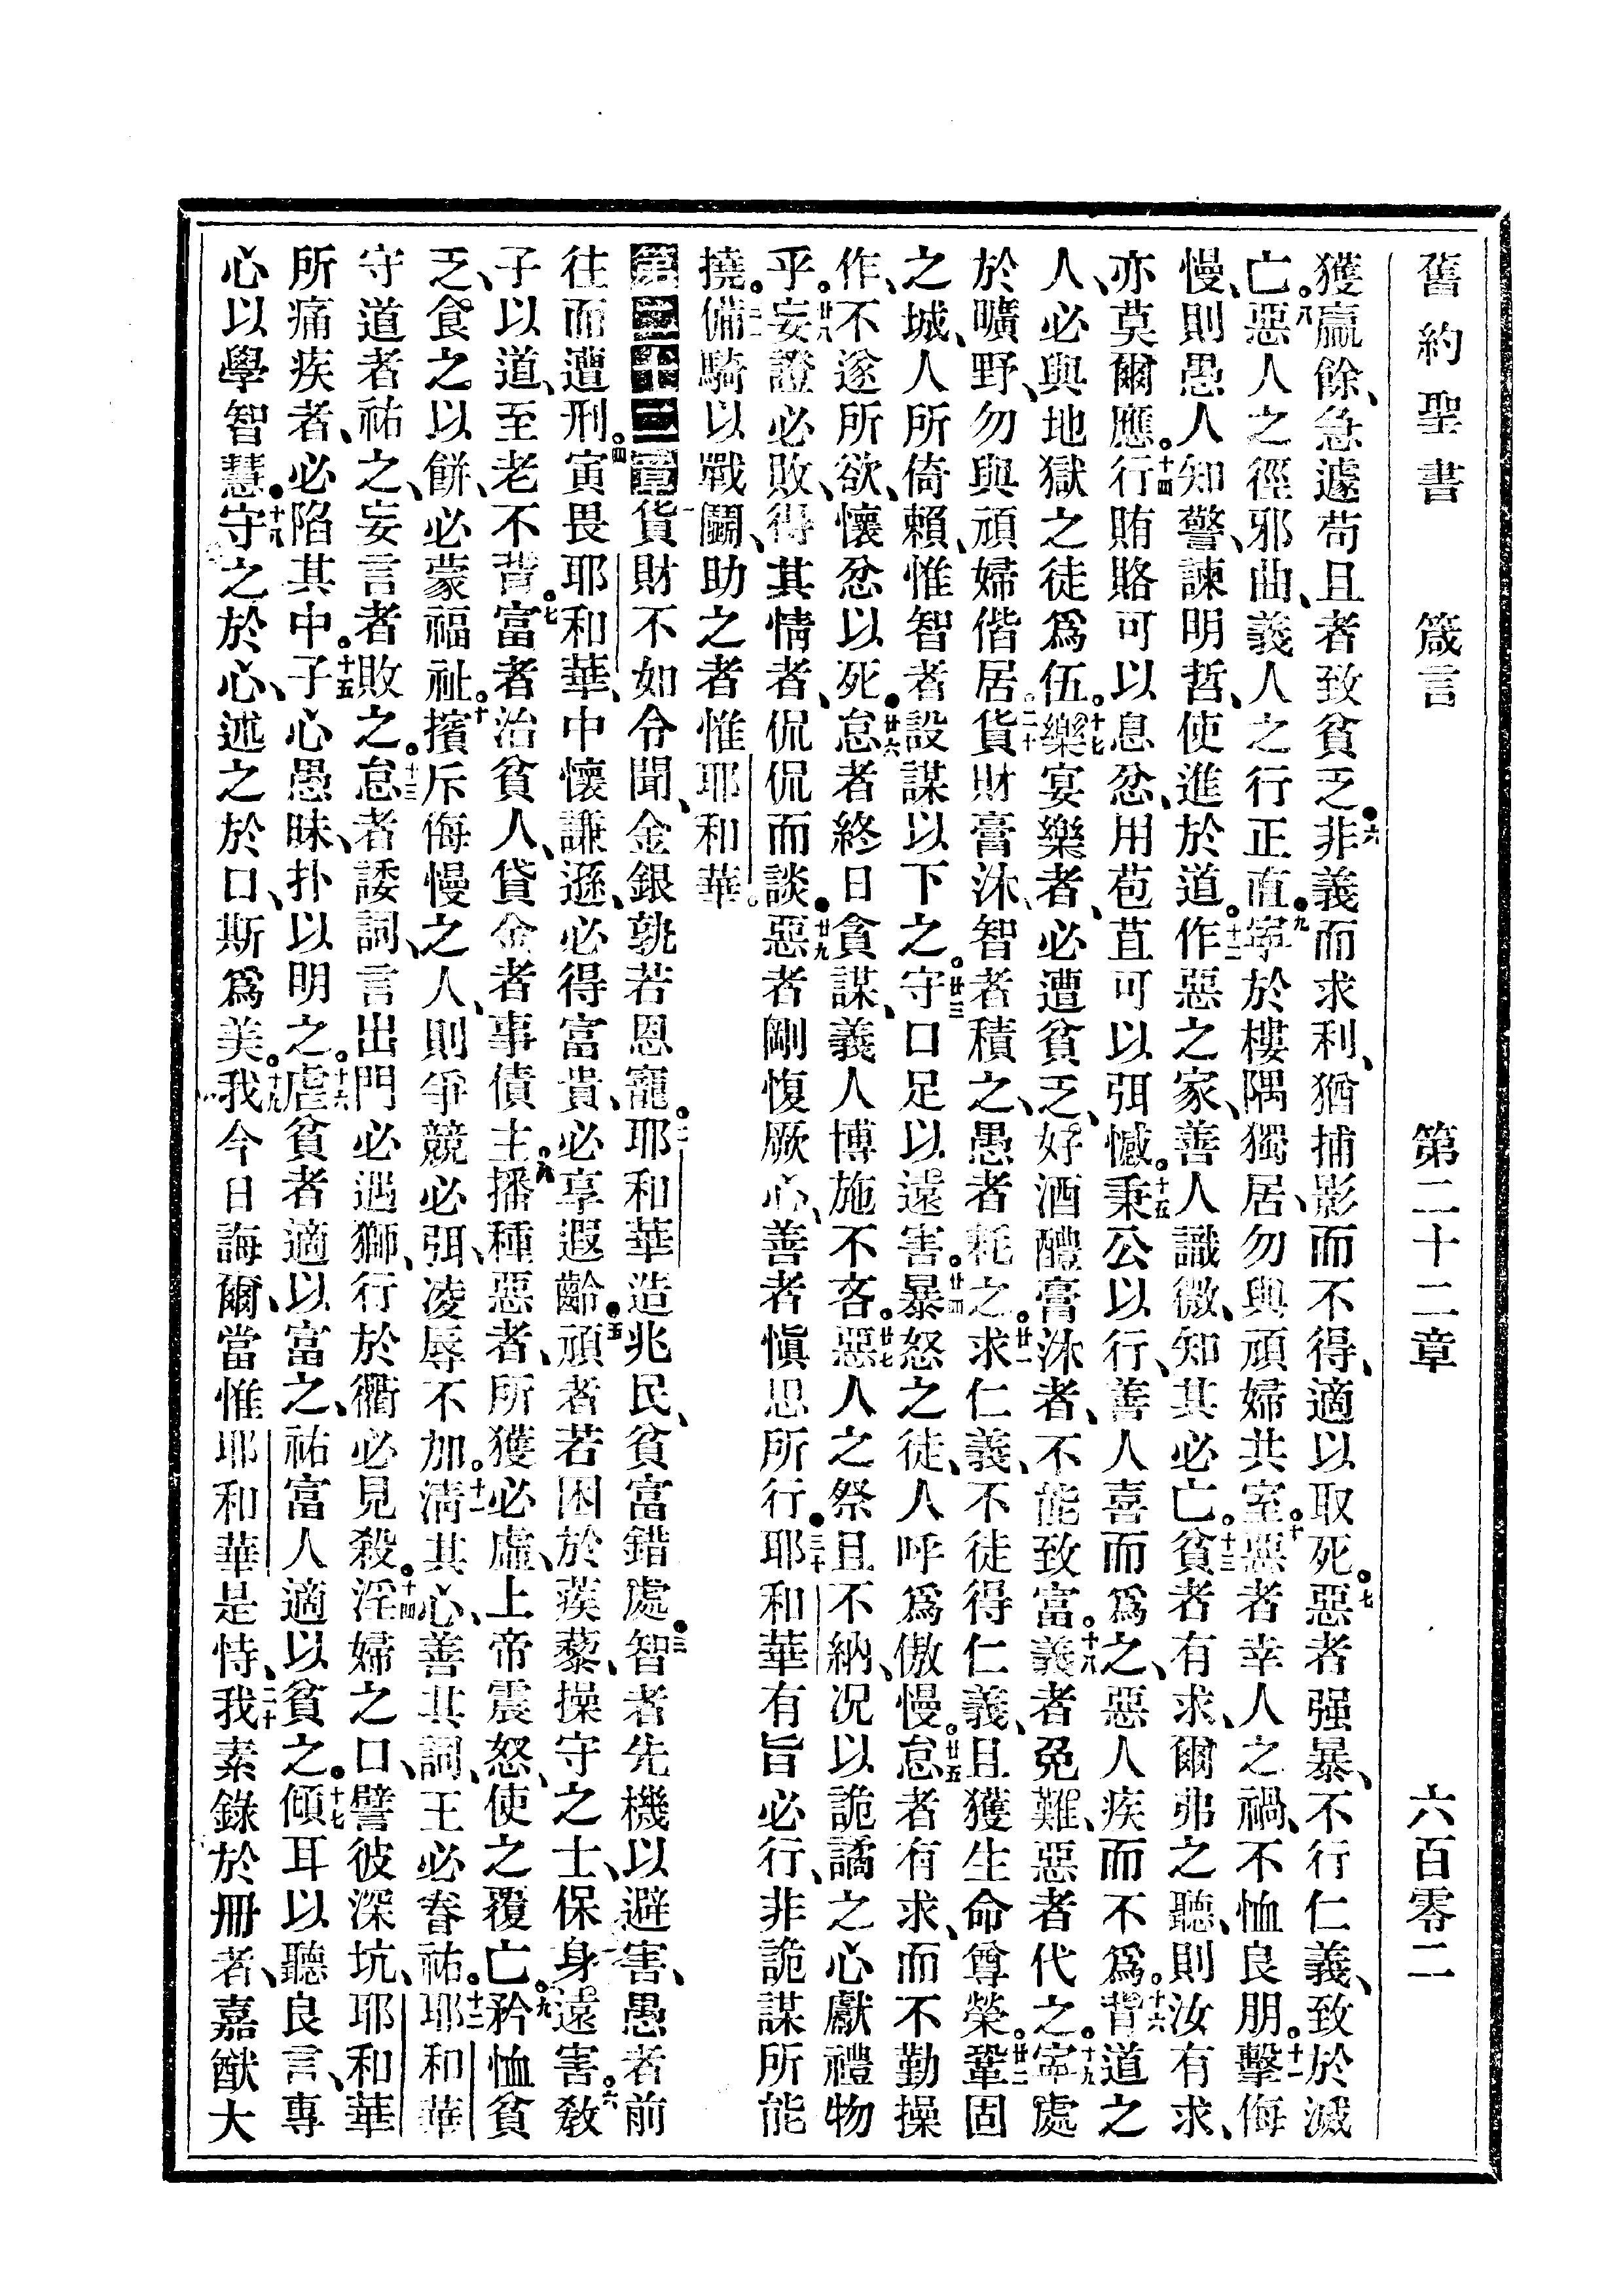 舊約聖書 箴言 第二十二章 六百零二
獲贏餘、急遽苟且者致貧乏。六非義而求利、猶捕影而不得、適以取死。七惡者强暴、不行仁義、致於滅
亡。八惡人之徑邪曲、義人之行正直。九寧於樓隅獨居、勿與頑婦共室。十惡者幸人之禍、不恤良朋。十一擊侮
慢、則愚人知警、諫明哲、使進於道。十二作惡之家、善人識微、知其必亡。十三貧者有求、爾弗之聽、則汝有求、
亦莫爾應。十四行賄賂可以息忿、用苞苴可以弭憾。十五秉公以行、善人喜而爲之、惡人疾而不爲。十六背道之
人、必與地獄之徒爲伍。十七樂宴樂者、必遭貧乏、好酒醴膏沐者、不能致富。十八義者免難、惡者代之。十九寧處
於曠野、勿與頑婦偕居。二十貨財膏沐、智者積之、愚者耗之。廿一求仁義、不徒得仁義、且獲生命尊榮。廿二鞏固
之城、人所倚賴、惟智者設謀以下之。廿三守口足以遠害。廿四暴怒之徒、人呼爲傲慢。廿五怠者有求、而不勤操
作、不遂所欲、懷忿以死。廿六怠者終日貪謀、義人博施不吝。廿七惡人之祭且不納、况以詭譎之心獻禮物
乎。廿八妄證必敗、得其情者、侃侃而談。廿九惡者剛愎厥心、善者愼思所行。三十耶和華有旨必行、非詭謀所能
撓。三一備騎以戰鬭、助之者惟耶和華。
第二十二章一貨財不如令聞、金銀孰若恩寵。二耶和華造兆民、貧富錯處。三智者先機以避害、愚者前
往而遭刑。四寅畏耶和華、中懷謙遜、必得富貴、必享遐齡。五頑者若困於蒺藜、操守之士、保身遠害。六敎
子以道、至老不背。七富者治貧人、貸金者事債主。八播種惡者、所獲必虛、上帝震怒、使之覆亡。九矜恤貧
乏、食之以餅、必蒙福祉。十擯斥侮慢之人、則爭競必弭、凌辱不加。十一淸其心、善其詞、王必眷祐。十二耶和華
守道者祐之、妄言者敗之。十三怠者諉詞、言出門必遇獅、行於衢必見殺。十四淫婦之口、譬彼深坑、耶和華
所痛疾者、必陷其中。十五子心愚昧、扑以明之。十六虐貧者適以富之、祐富人適以貧之。十七傾耳以聽良言、專
心以學智慧。十八守之於心、述之於口、斯爲美。十九我今日誨爾、當惟耶和華是恃、二十我素錄於冊者、嘉猷大